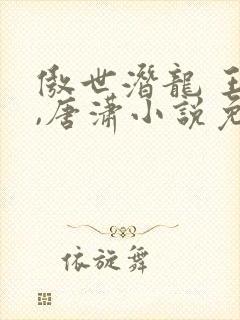 傲世潛龍
,唐瀟小說免
依旋舞